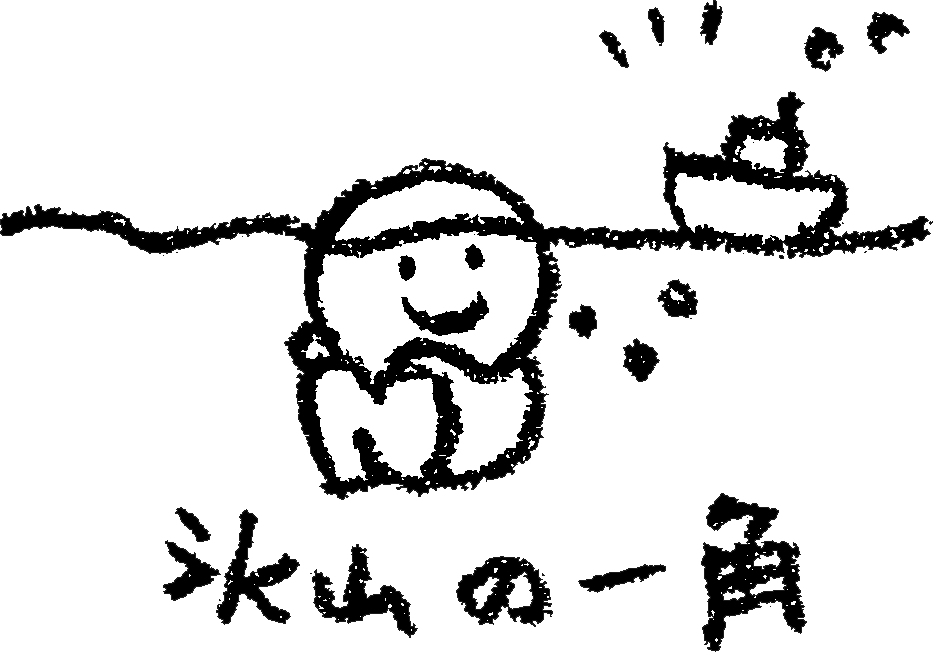 氷山の一角